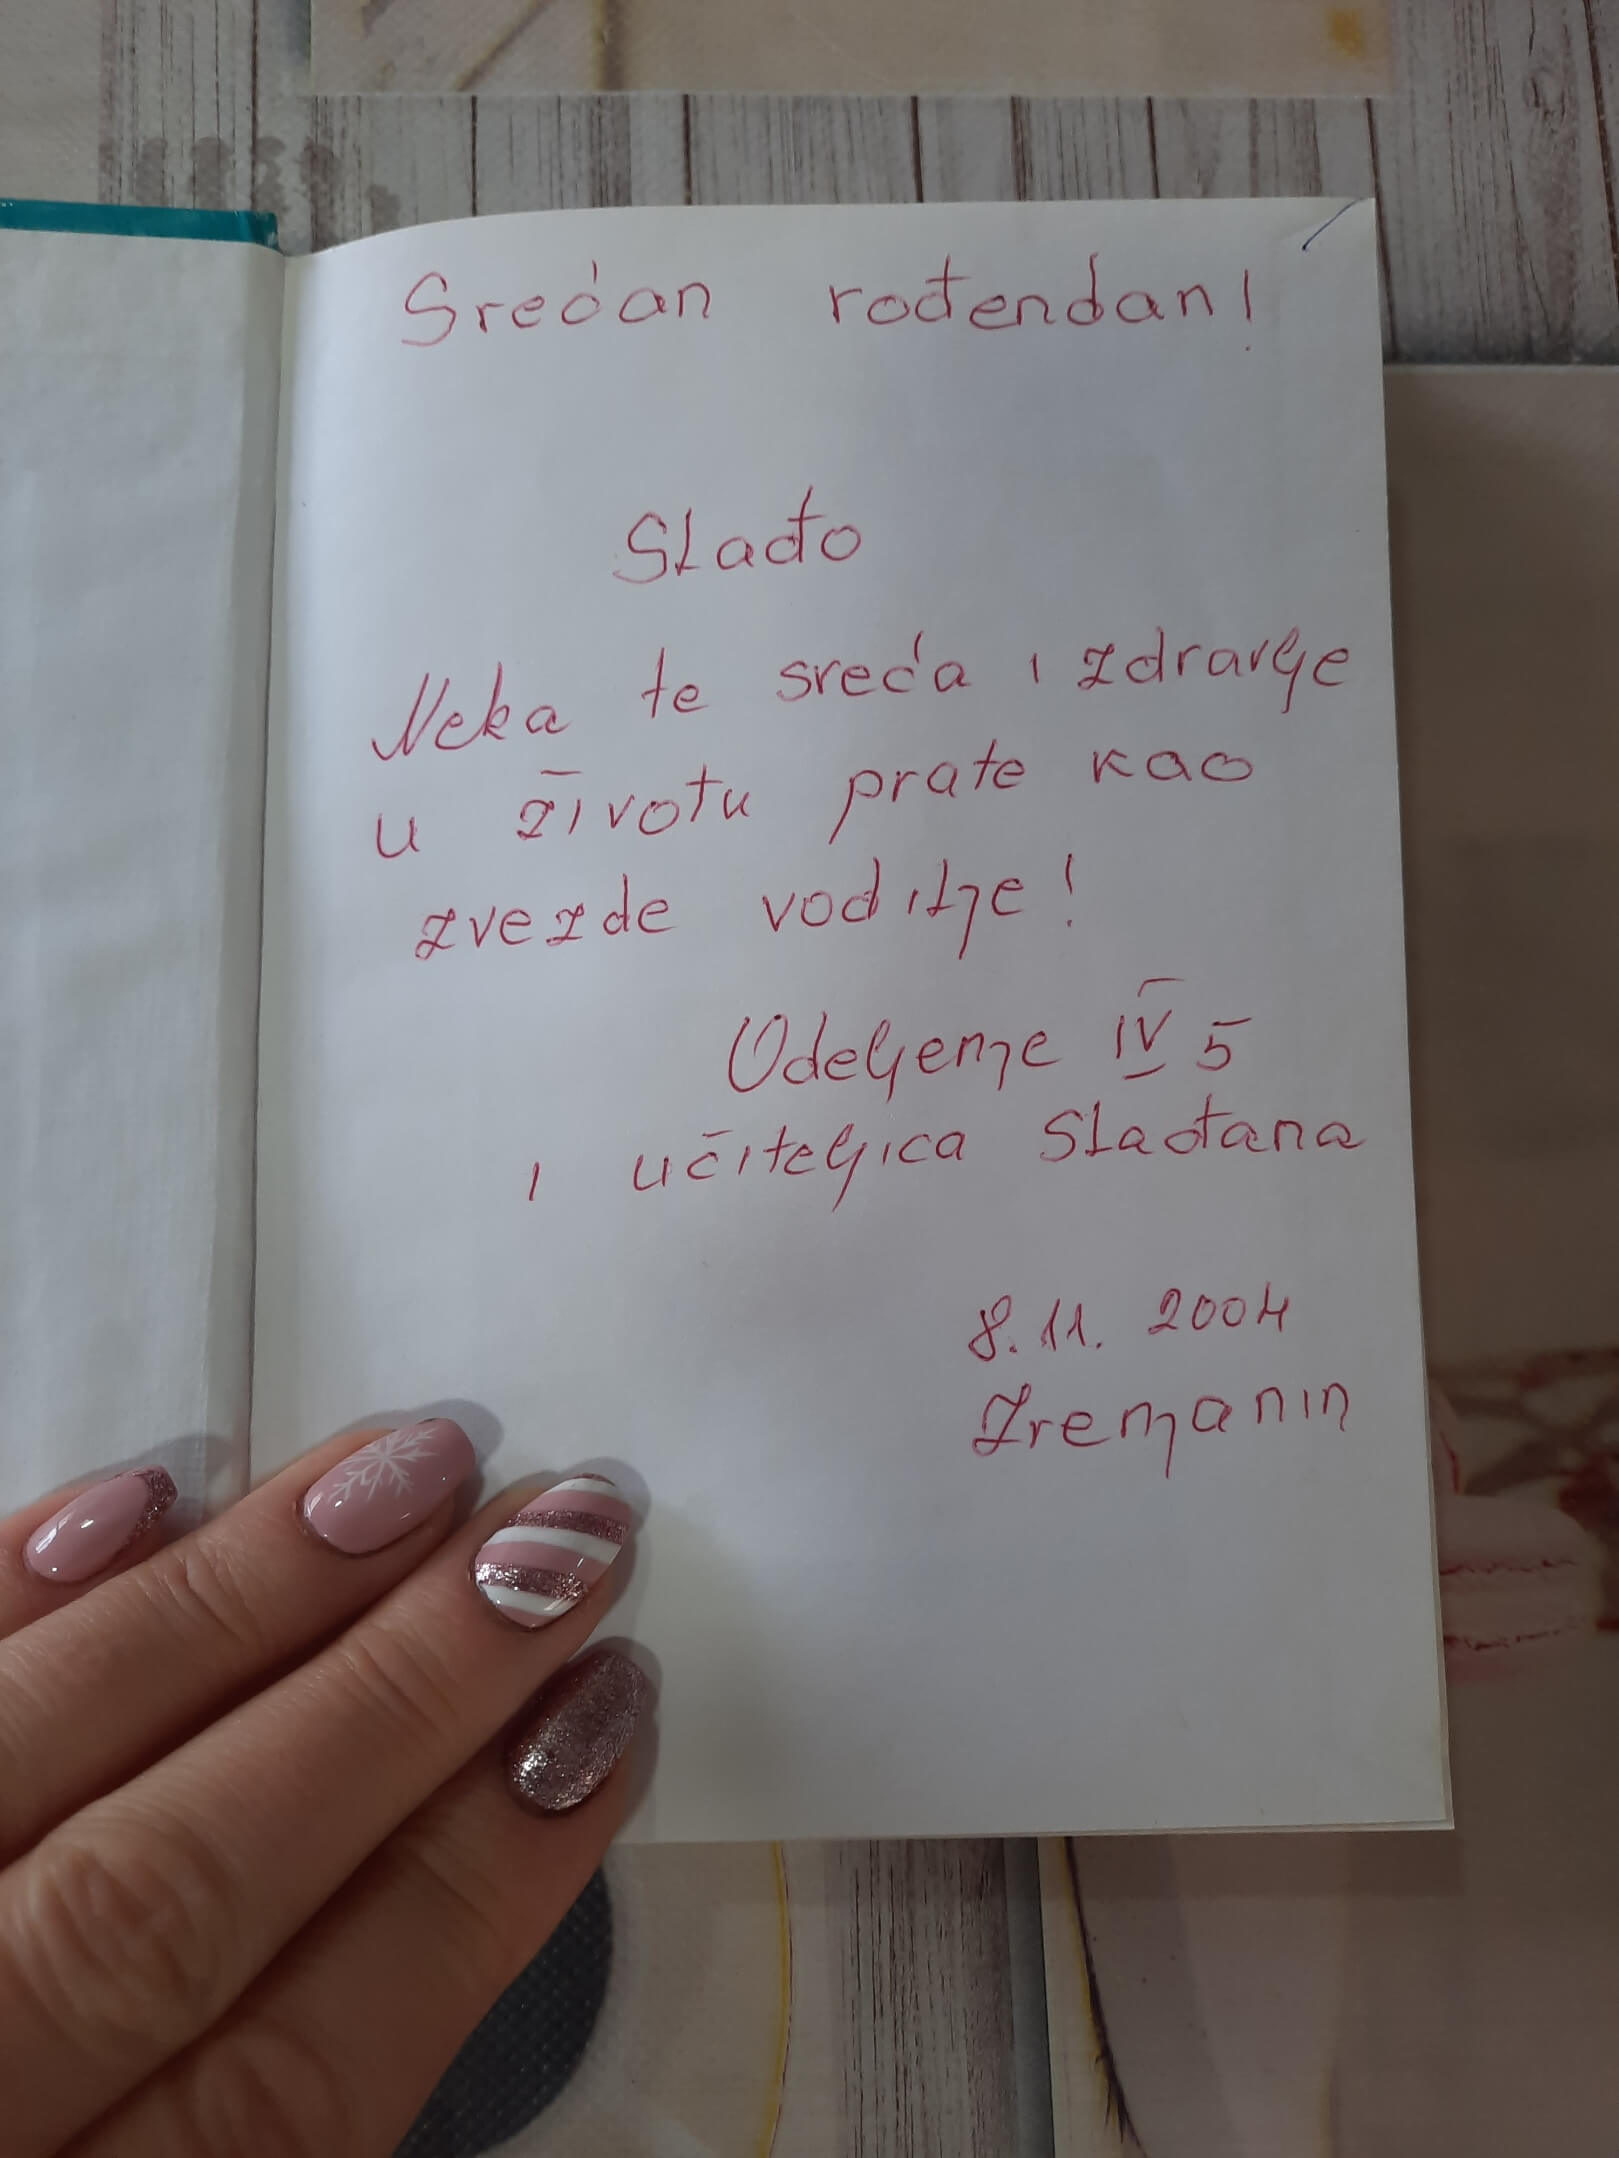 Srećan rođendan!
Slađo
Neka te sreća i zdravlje
u životu prate kao
zvezde vodilje!
Odeljenje IV 5
i učiteljica Slađana
8.11. 2004
Zrenjanin